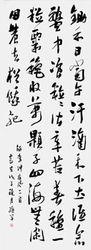 鋤禾日當午汗滴禾下土誰念
盤中餐粒粒皆辛苦春種一
粒粟秋收萬顆子四海無閑
田農夫猶餓死
李紳憫農二首